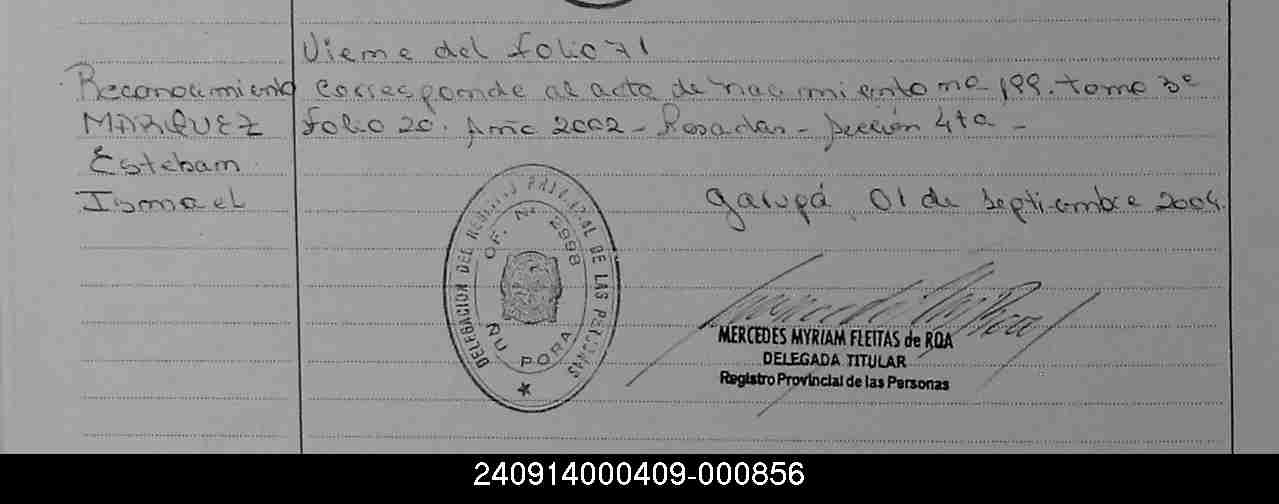 Viene del folio 71
Reconocimiento corresponde al acta de nacimiento nº 199. tomo 3º
MARQUEZ folio 20. Año 2002 - Posadas - Sección 4ta -
Esteban
Ismael
Garupá, 01 de septiembre 2004.
DELEGACION DEL REGISTRO PROVINCIAL DE LAS PERSONAS
OF. Nº 2998
ÑU PORA
MERCEDES MYRIAM FLEITAS de ROA
DELEGADA TITULAR
Registro Provincial de las Personas
240914000409-000856